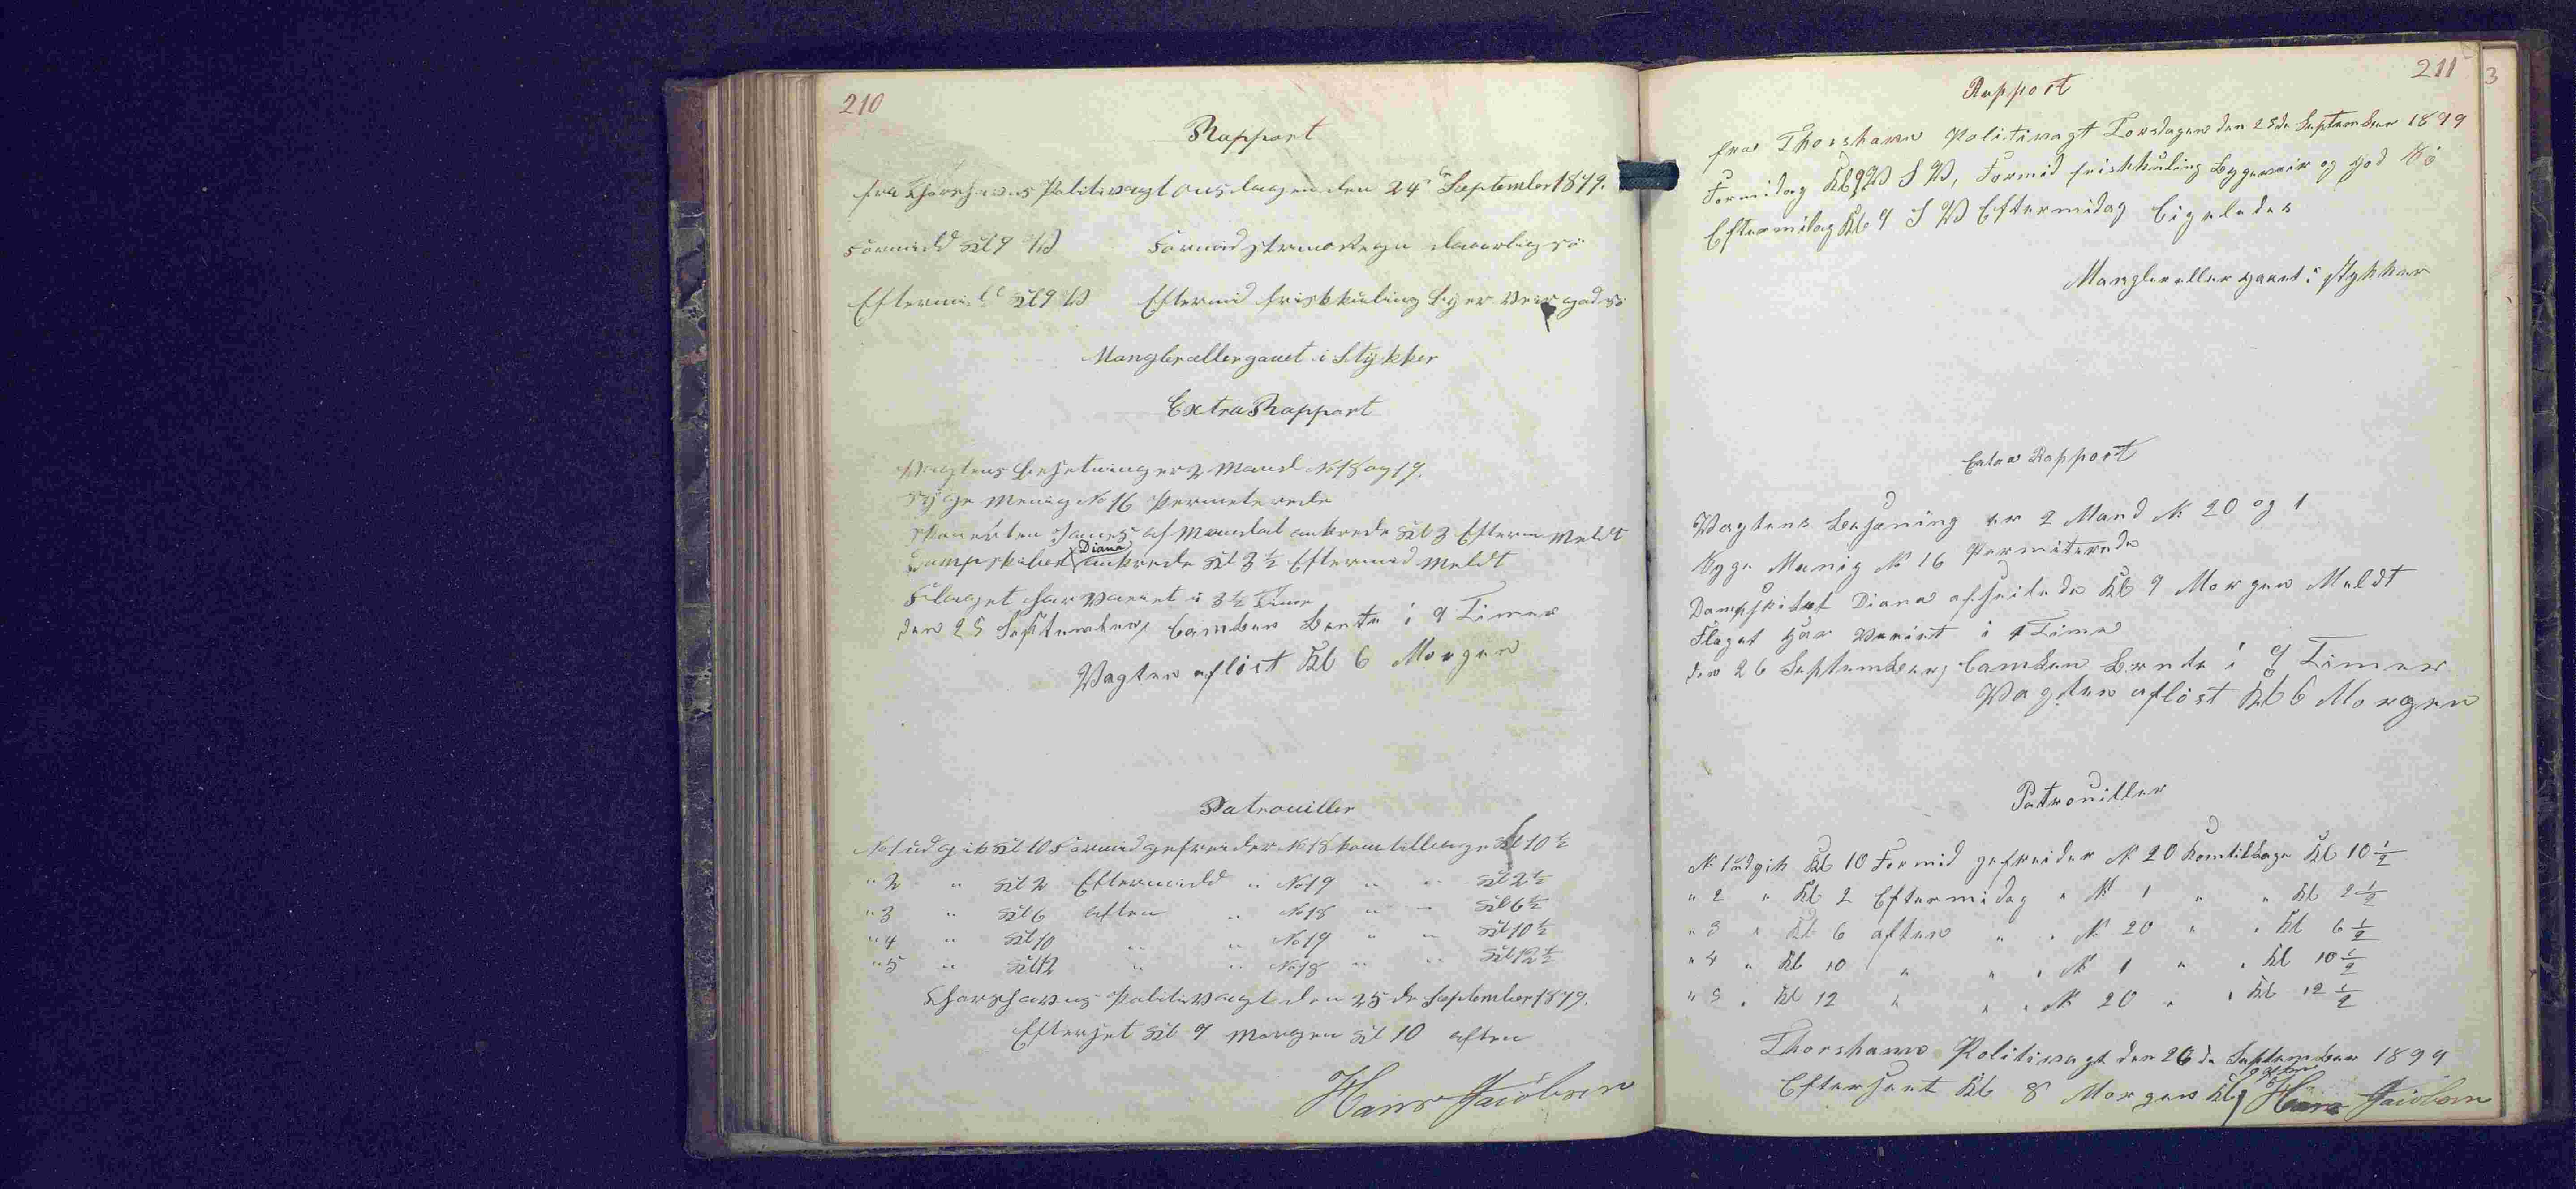 210
Rapport
fra Thorshavns Politivagt Onsdagen den 24de September 1879.
Formidd Kl 9 W Formid strmoregn daarlig sö
Eftermidd Kl 9 W Eftermid friskkuling byger Veir god sö
Mangler eller gaaet i Stykker
Extra Rapport
Vagtens besetning er 2 Mand No 18 og 19.
Syge Menig No 16 Permeterede
Skonerten James af Mandal ankrede Kl 3 Efterm Meldt
Dampskibet Diana ankrede Kl 3 ½ Eftermid Meldt
Flaget har Vaeiet i 3 ½ Time
den 25 September, Lamben brente i 9 Timer
Vagten aflöst Kl 6 Morgen
Patrouiller
No 1 udgik Kl 10 Formid gefreider No 18 kom tillbage Kl 10 ½
" 2 " Kl 2 Eftermidd " No 19 " " Kl 2 ½
" 3 " Kl 6 aften " No 18 " " Kl 6 ½
" 4 " Kl 10 " " No 19 " " Kl 10 ½
" 5 " Kl 12 " " No 18 " " Kl 12 ½
Thorshavns Politivagt den 25de September 1879.
Efterset Kl 9 Morgen Kl 10 aften
Hans Jacobsen
211
3
Rapport
fra Thorshavn Politivagt Torsdagen den 25de September 1879
Formidag Kl 9 W S W, Formid friskkuling bygeveir og god Sö
Eftermidag Kl 9 S W Eftermidag ligeledes
Mangler eller gaaet i Stykker
Extra Rapport
Vagtens besæning er 2 Mand No 20 og 1
Syge Menig No 16 Permiterede
Dampskibet Diana afseilede Kl 9 Morgen Meldt
Flaget har Vaeiet i 1 Time
den 26 September, Lamben brente i 9 Timer
Vagten aflöst Kl 6 Morgen
Patrouiller
No 1 udgik Kl 10 Formid gefreider No 20 kom tilbage Kl 10 ½
" 2 " Kl 2 Eftermidag " No 1 " " Kl 2 ½
" 3 " Kl 6 aften " " No 20 " " Kl 6 ½
" 4 " Kl 10 " " " No 1 " " Kl 10 ½
" 5 " Kl 12 " " " No 20 " " Kl 12 ½
Thorshavn Politivagt den 26de September 1879
Efterseet Kl 8 Morgen Kl 9 Aften Hans Jacobsen